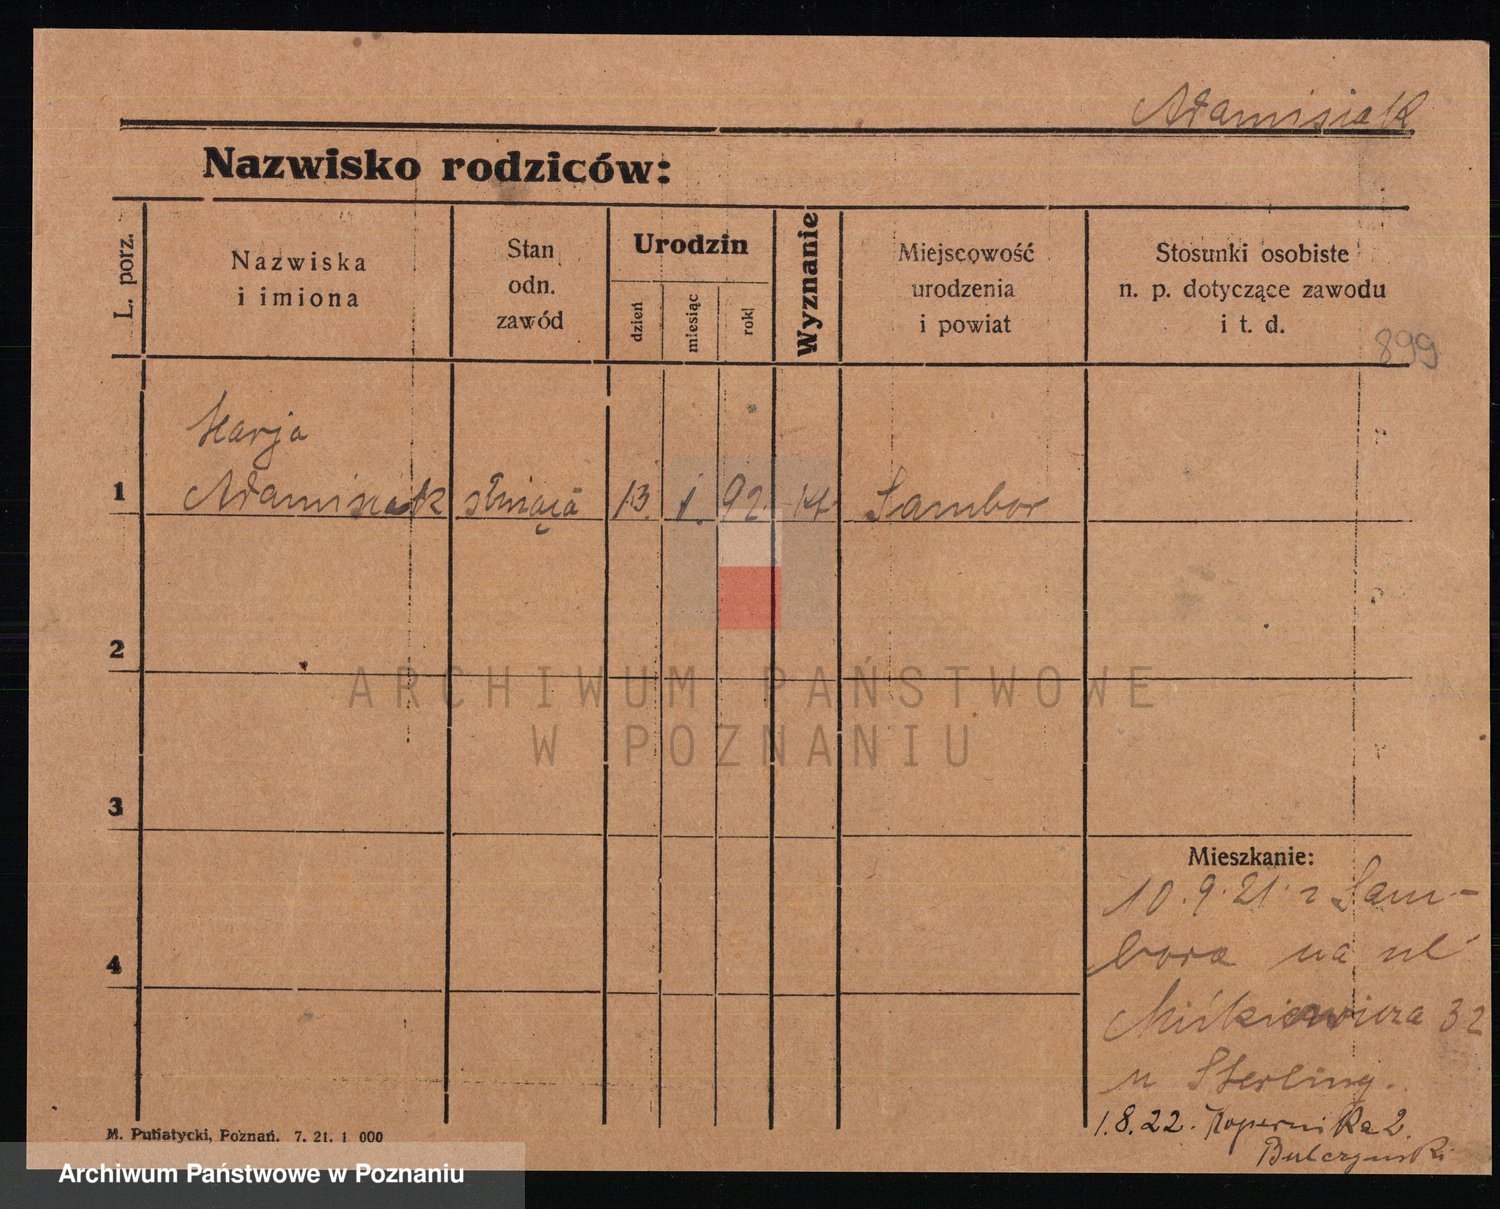 Adamisiak
Nazwisko rodziców:
L. porz.
Nazwiska
i imiona
Stan
odn.
zawód
Urodzin
dzień
miesiąc
rok
Wyznanie
Miejscowość
urodzenia
i powiat
Stosunki osobiste
n. p. dotyczące zawodu
i t. d.
899
Marja
1 Adamisiak służąca 13. 1. 92 kt Sambor
2
3
4
Mieszkanie:
10.9.21 z Sam-
bora na ul
Mickiewicza 32
u Sterling.
1.8.22. Kopernika 2.
M. Putiatycki, Poznań. 7. 21. 1 000
ARCHIWUM PAŃSTWOWE
W POZNANIU
Archiwum Państwowe w Poznaniu